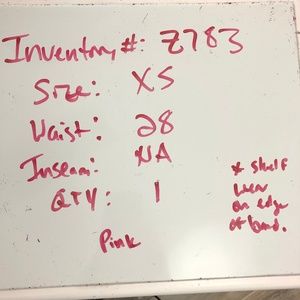 Inventory #: Z783
Size: XS
Waist: 28
Inseam: NA
QTY: 1
Pink
* shelf
wear
on edge
of band.